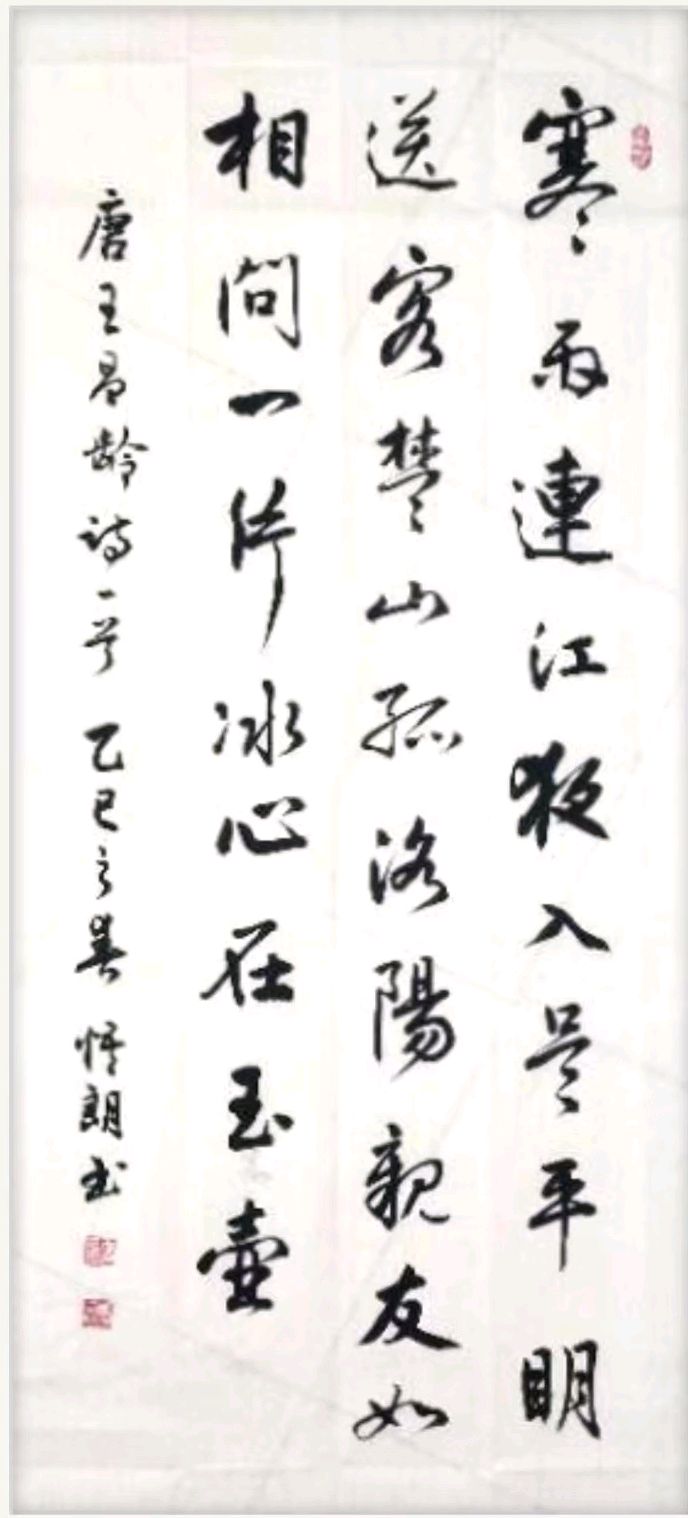 寒雨連江夜入吴平明
送客楚山孤洛陽親友如
相問一片冰心在玉壺
唐王昌齡詩一首 乙巳之春 悟朗书